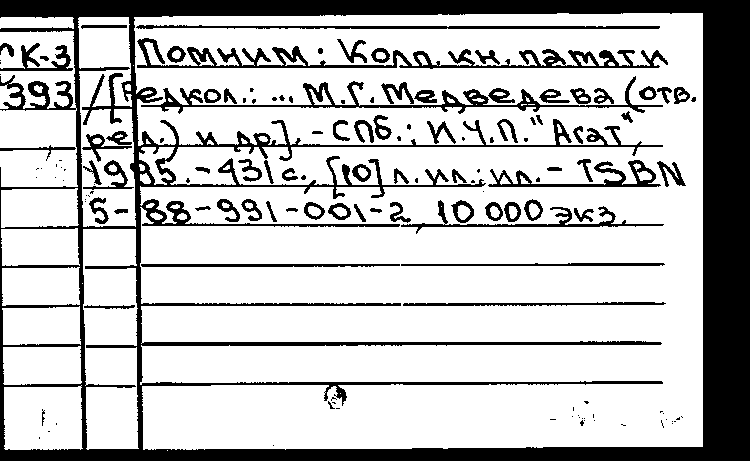 К-3 Помним: Колп. кн. памяти
393 /[Редкол.: ... М.Г. Медведева (отв.
ред.) и др.]. - СПб.: И.Ч.П. "Агат",
1995. - 431 с., [10] л. ил.: ил. - ISBN
5-88-991-001-2, 10 000 экз.